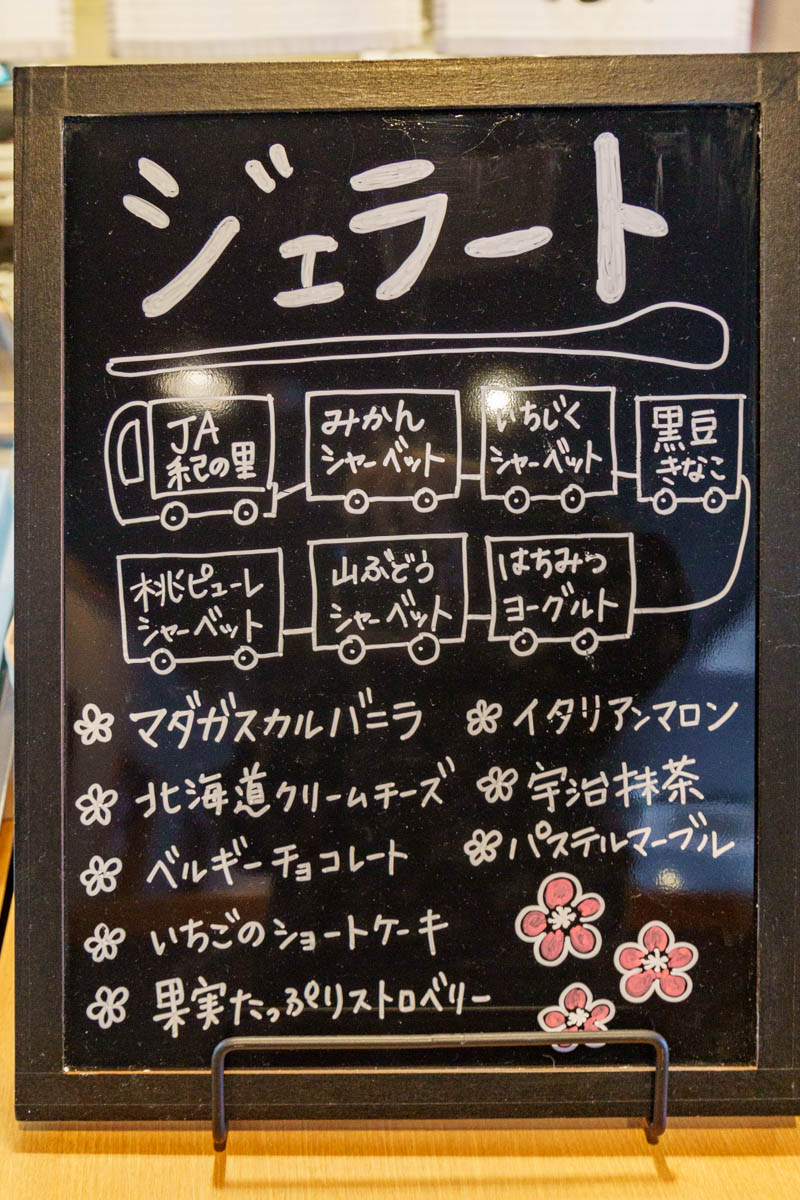 ジェラート
JA
紀の里
みかん
シャーベット
いちじく
シャーベット
黒豆
きなこ
はちみつ
ヨーグルト
山ぶどう
シャーベット
桃ピューレ
シャーベット
マダガスカルバニラ
北海道クリームチーズ
ベルギーチョコレート
いちごのショートケーキ
果実たっぷりストロベリー
イタリアンマロン
宇治抹茶
パステルマーブル